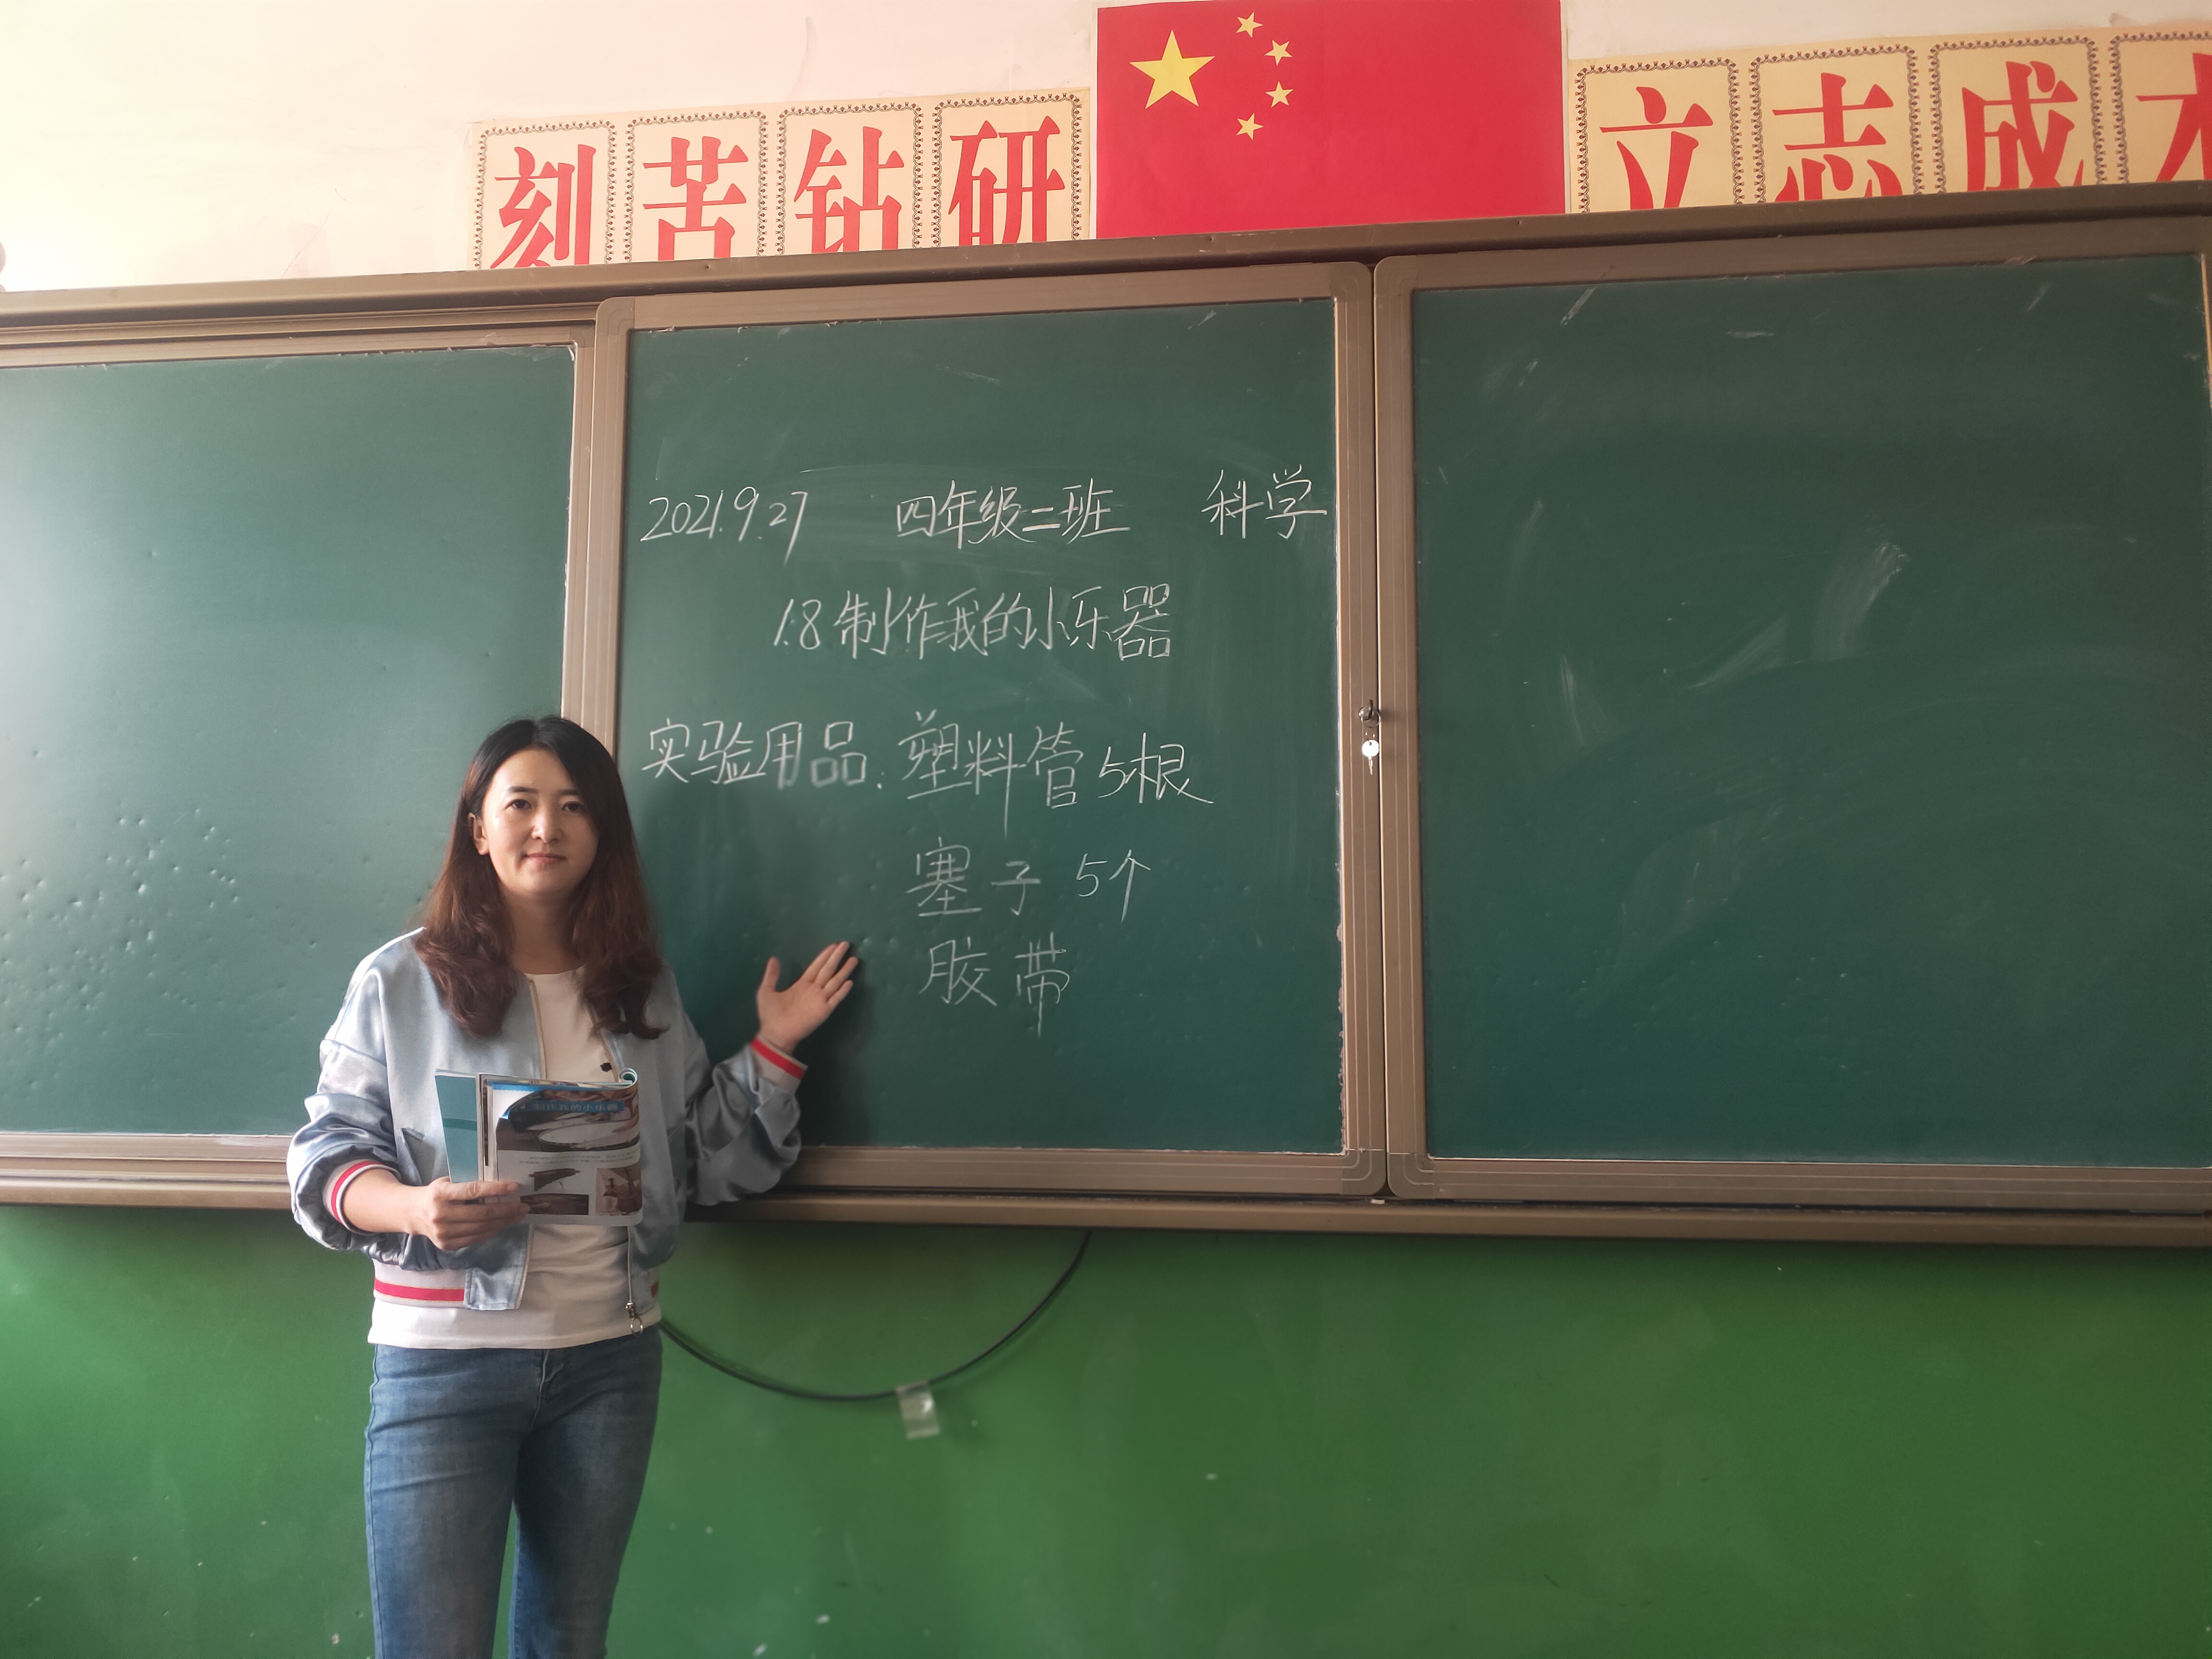 刻苦钻研 立志成才
2021.9.27 四年级二班 科学
1.8 制作我的小乐器
实验用品: 塑料管5根
塞子 5个
胶带
制作我的小乐器